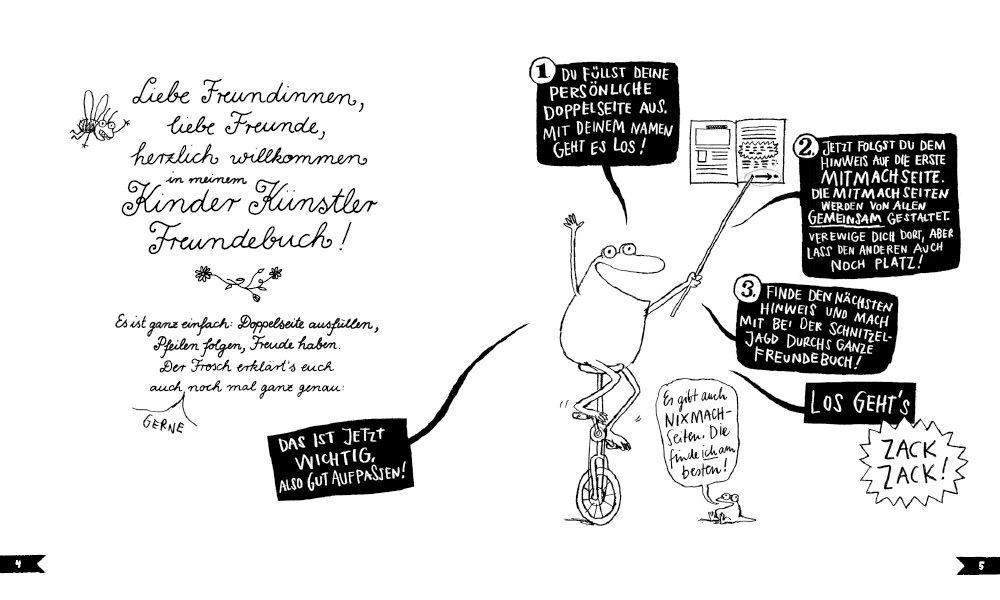 Liebe Freundinnen,
liebe Freunde,
herzlich willkommen
in meinem
Kinder Künstler
Freundebuch!
Es ist ganz einfach: Doppelseite ausfüllen,
Pfeilen folgen, Freude haben.
Der Frosch erklärt's euch
auch noch mal ganz genau:
GERNE
DAS IST JETZT
WICHTIG,
ALSO GUT AUFPASSEN!
4
1. DU FÜLLST DEINE
PERSÖNLICHE
DOPPELSEITE AUS.
MIT DEINEM NAMEN
GEHT ES LOS!
2. JETZT FOLGST DU DEM
HINWEIS AUF DIE ERSTE
MITMACHSEITE.
DIE MITMACHSEITEN
WERDEN VON ALLEN
GEMEINSAM GESTALTET.
VEREWIGE DICH DORT, ABER
LASS DEN ANDEREN AUCH
NOCH PLATZ!
3. FINDE DEN NÄCHSTEN
HINWEIS UND MACH
MIT BEI DER SCHNITZEL-
JAGD DURCHS GANZE
FREUNDEBUCH!
LOS GEHT'S
ZACK
ZACK!
Es gibt auch
NIXMACH-
Seiten. Die
finde ich am
besten!
5